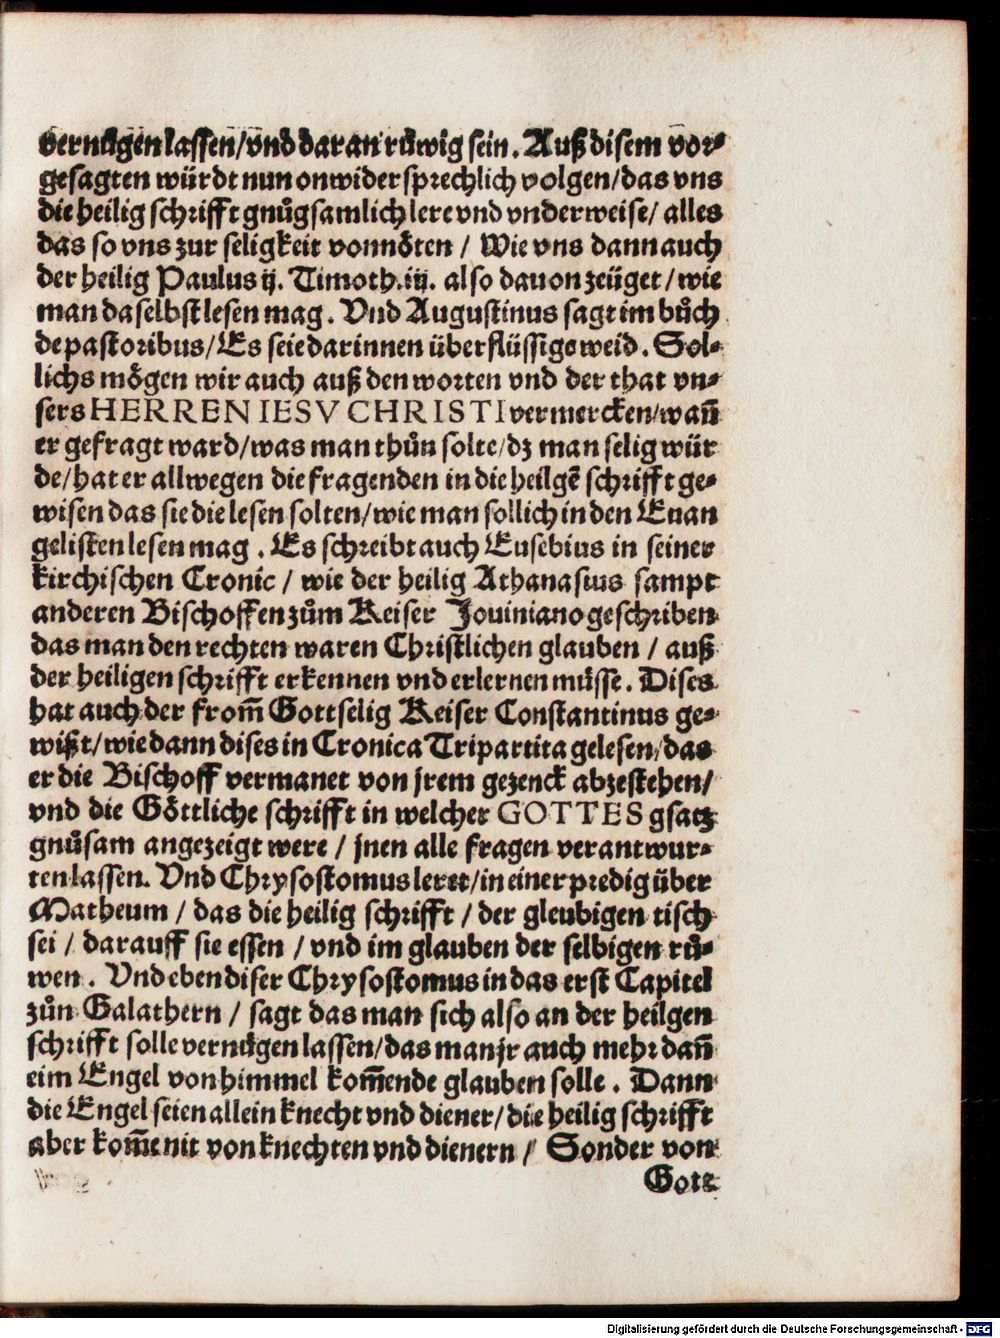 vernůgen lassen/vnd daran růwig sein. Auß disem vor⸗
gesagten würdt nun onwidersprechlich volgen/das vns
die heilig schrifft gnůgsamlich lere vnd vnderweise/ alles
das so vns zur seligkeit vonnöten / Wie vns dann auch
der heilig Paulus ij. Timoth.iij. also dauon zeüget/wie
man daselbst lesen mag. Vnd Augustinus sagt im bůch
de pastoribus/Es seie darinnen überflüssige weid. Sol⸗
lichs mögen wir auch auß den worten vnd der that vn⸗
sers HERREN IESV CHRISTI vermercken/wañ
er gefragt ward/was man thůn solte/dz man selig wür
de/hat er allwegen die fragenden in die heilgẽ schrifft ge⸗
wisen das sie die lesen solten/wie man sollich in den Euan
gelisten lesen mag . Es schreibt auch Eusebius in seiner
kirchischen Cronic / wie der heilig Athanasius sampt
anderen Bischoffen zům Keiser Jouiniano geschriben
das man den rechten waren Christlichen glauben / auß
der heiligen schrifft erkennen vnd erlernen müsse. Dises
hat auch der from̃ Gottselig Keiser Constantinus ge⸗
wißt/wie dann dises in Cronica Tripartita gelesen/das
er die Bischoff vermanet von jrem gezenck abzestehen/
vnd die Göttliche schrifft in welcher GOTTES gsatz
gnůsam angezeigt were / jnen alle fragen verantwur⸗
ten lassen. Vnd Chrysostomus leret/in einer predig über
Matheum / das die heilig schrifft / der gleubigen tisch
sei / darauff sie essen / vnd im glauben der selbigen rů⸗
wen . Vnd eben diser Chrysostomus in das erst Capitel
zůn Galathern / sagt das man sich also an der heilgen
schrifft solle vernůgen lassen/das man jr auch mehr dañ
eim Engel von himmel kom̃ende glauben solle . Dann
die Engel seien allein knecht vnd diener/die heilig schrifft
aber kom̃e nit von knechten vnd dienern / Sonder von
Gott
Digitalisierung gefördert durch die Deutsche Forschungsgemeinschaft - DFG